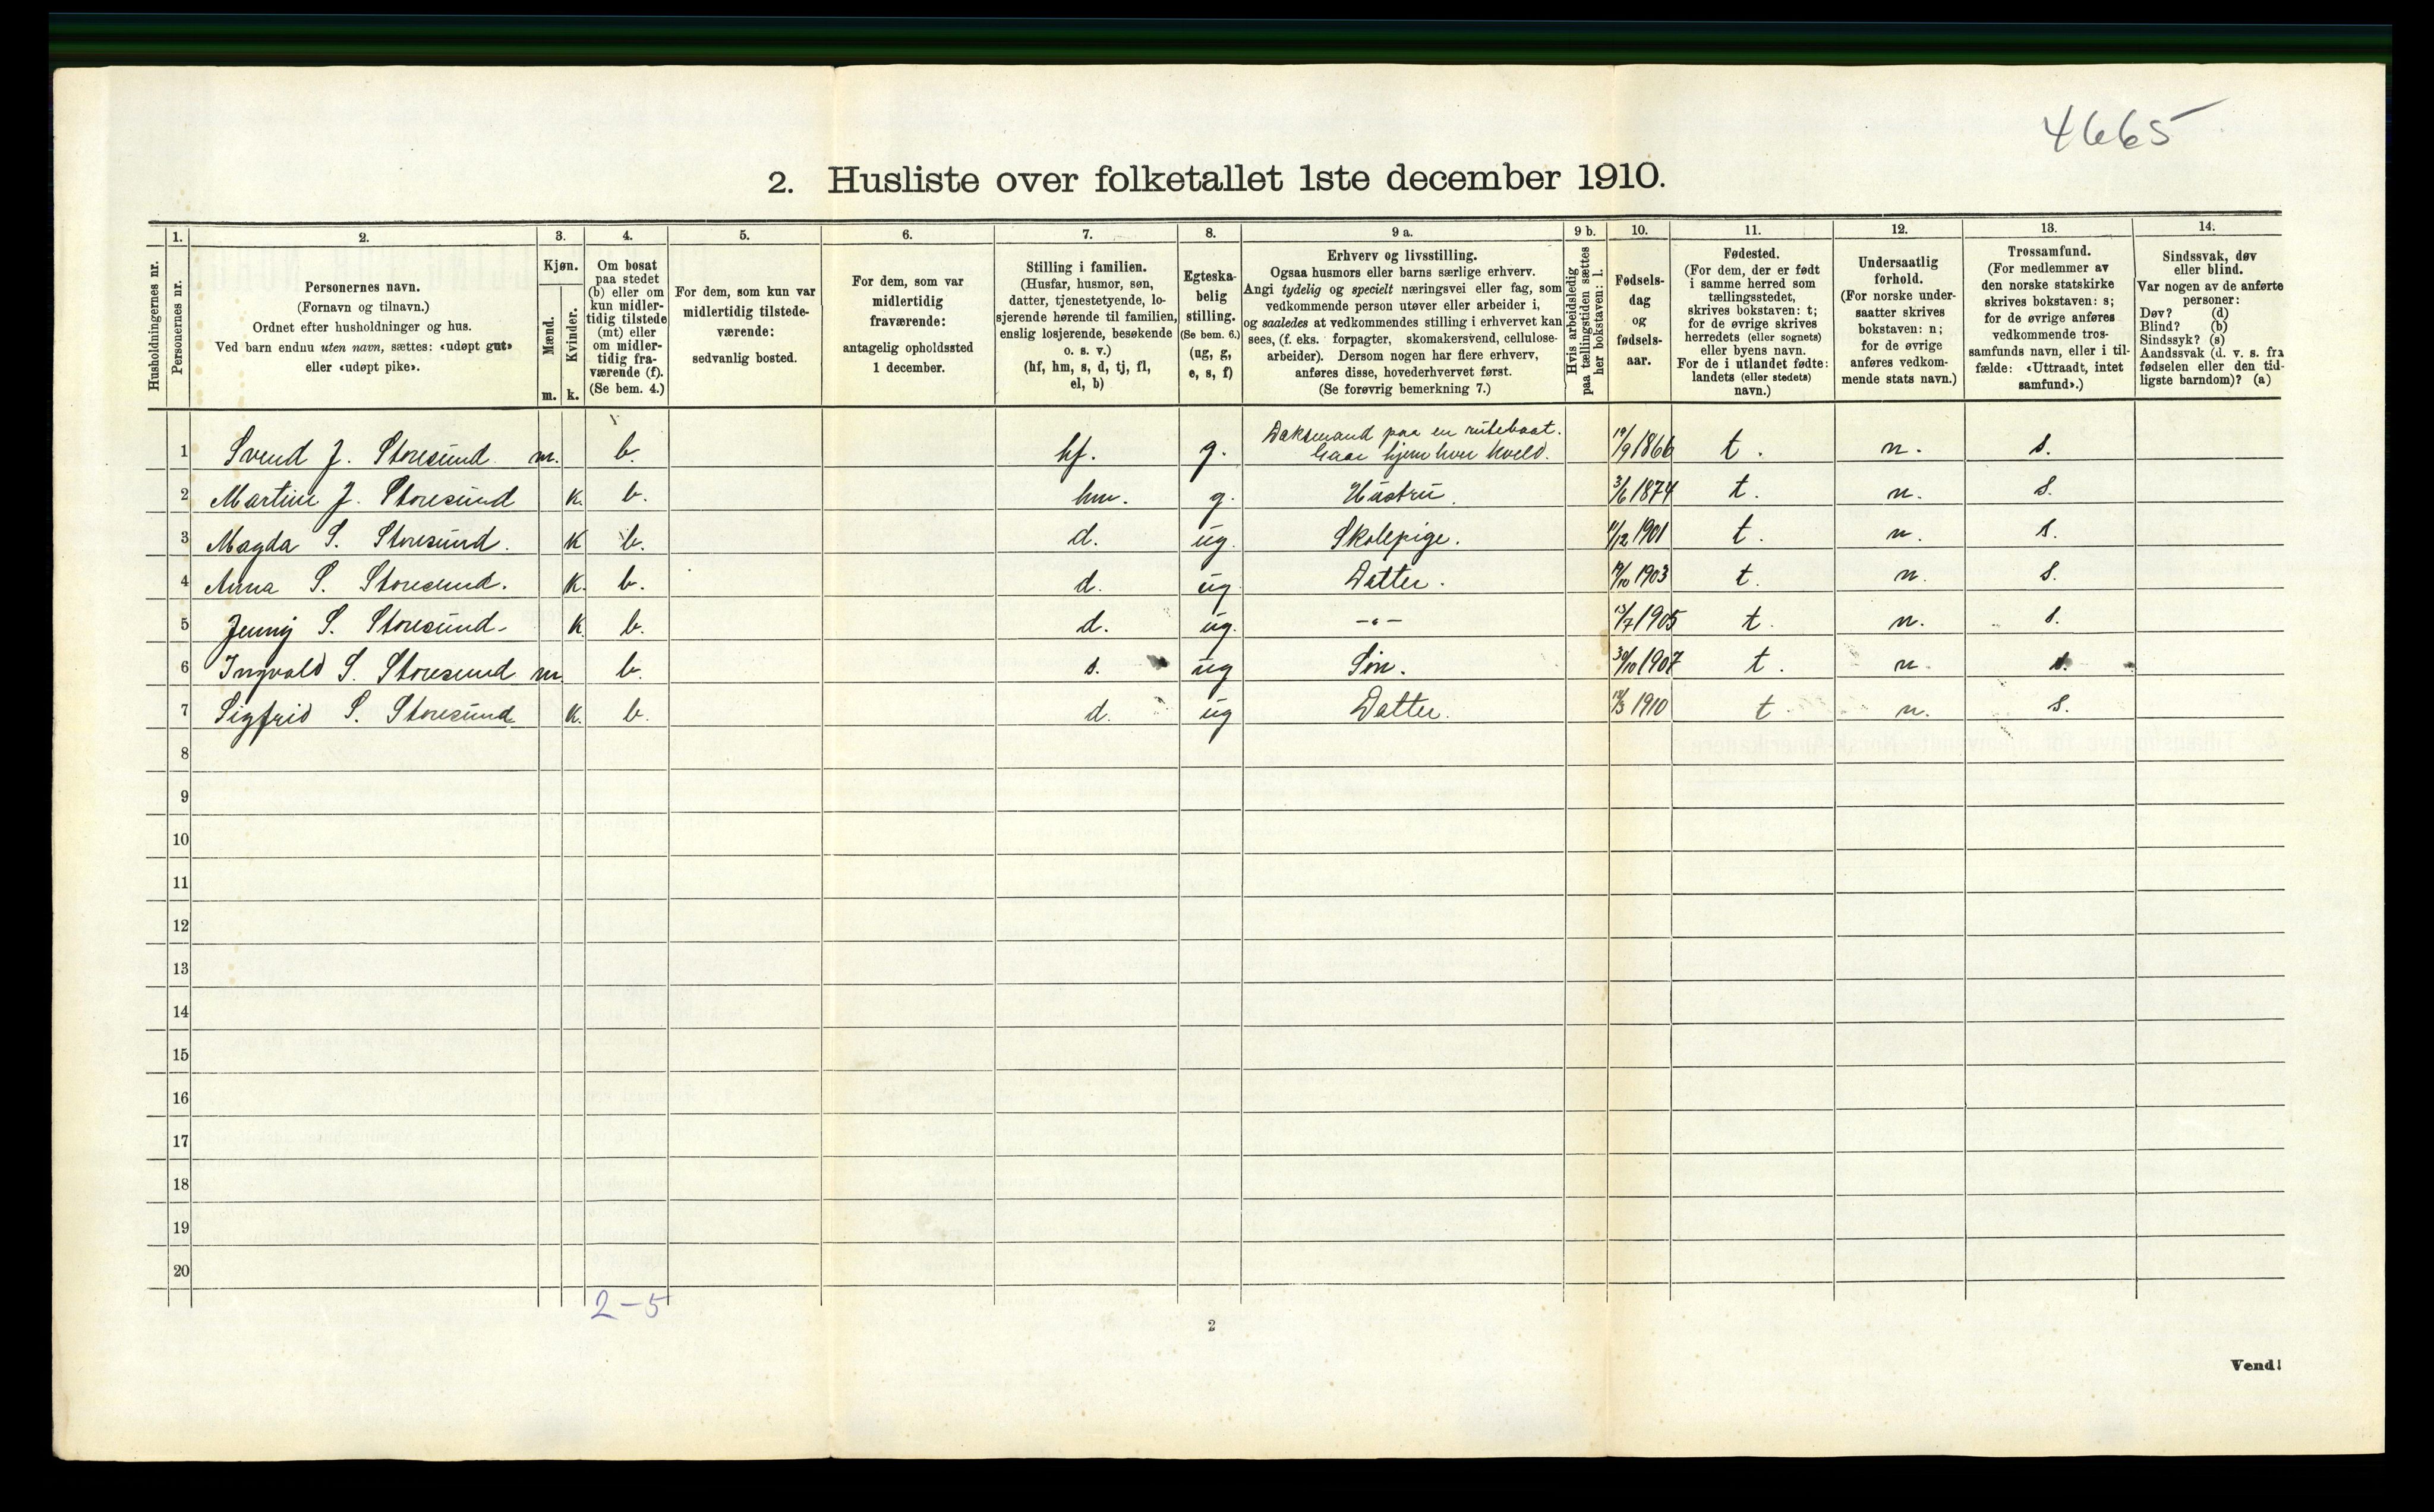 4665
2. Husliste over folketallet 1ste december 1910.
Husholdningernes nr.
1.
Personernes nr.
2.
Personernes navn.
(Fornavn og tilnavn.)
Ordnet efter husholdninger og hus.
Ved barn endnu uten navn, sættes: «udøpt gut»
eller «udøpt pike».
3.
Kjøn.
Mænd.
Kvinder.
m. k.
4.
Om bosat
paa stedet
(b) eller om
kun midler-
tidig tilstede
(mt) eller
om midler-
tidig fra-
værende (f).
(Se bem. 4.)
5.
For dem, som kun var
midlertidig tilstede-
værende:
sedvanlig bosted.
6.
For dem, som var
midlertidig
fraværende:
antagelig opholdssted
1 december.
7.
Stilling i familien.
(Husfar, husmor, søn,
datter, tjenestetyende, lo-
sjerende hørende til familien,
enslig losjerende, besøkende
o. s. v.)
(hf, hm, s, d, tj, fl,
el, b)
8.
Egteska-
belig
stilling.
(Se bem. 6.)
(ug, g,
e, s, f)
9 a.
Erhverv og livsstilling.
Ogsaa husmors eller barns særlige erhverv.
Angi tydelig og specielt næringsvei eller fag, som
vedkommende person utøver eller arbeider i,
og saaledes at vedkommendes stilling i erhvervet kan
sees, (f. eks. forpagter, skomakersvend, cellulose-
arbeider). Dersom nogen har flere erhverv,
anføres disse, hovederhvervet først.
(Se forøvrig bemerkning 7.)
9 b.
Hvis arbeidsledig
paa tællingstiden sættes
her bokstaven: l.
10.
Fødsels-
dag
og
fødsels-
aar.
11.
Fødested.
(For dem, der er født
i samme herred som
tællingsstedet,
skrives bokstaven: t;
for de øvrige skrives
herredets (eller sognets)
eller byens navn.
For de i utlandet fødte:
landets (eller stedets)
navn.)
12.
Undersaatlig
forhold.
(For norske under-
saatter skrives
bokstaven: n;
for de øvrige
anføres vedkom-
mende stats navn.)
13.
Trossamfund.
(For medlemmer av
den norske statskirke
skrives bokstaven: s;
for de øvrige anføres
vedkommende tros-
samfunds navn, eller i til-
fælde: «Uttraadt, intet
samfund».)
14.
Sindssvak, døv
eller blind.
Var nogen av de anførte
personer:
Døv? (d)
Blind? (b)
Sindssyk? (s)
Aandssvak (d. v. s. fra
fødselen eller den tid-
ligste barndom)? (a)
1 Svend J. Storesund m. b. hf. g. Daksmand paa en rutebaat. Gaar hjem hver kveld. 19/9 1866 t. n. s.
2 Martine J. Storesund k. b. hm. g. Hustru. 3/6 1874 t. n. s.
3 Magda S. Storesund. k b. d. ug. Skolepige. 11/12 1901 t. n. s.
4 Anna S. Storesund. k. b. d. ug Datter. 19/10 1903 t. n. s.
5 Jenny S. Storesund. k b. d. ug. -"- 13/7 1905 t. n. s.
6 Ingvald S. Storesund m. b. s. ug Søn. 30/10 1907 t. n. s.
7 Sigfrid S. Storesund k. b. d. ug Datter. 1910 t n. s.
8
9
10
11
12
13
14
15
16
17
18
19
20
2-5
2
Vend!